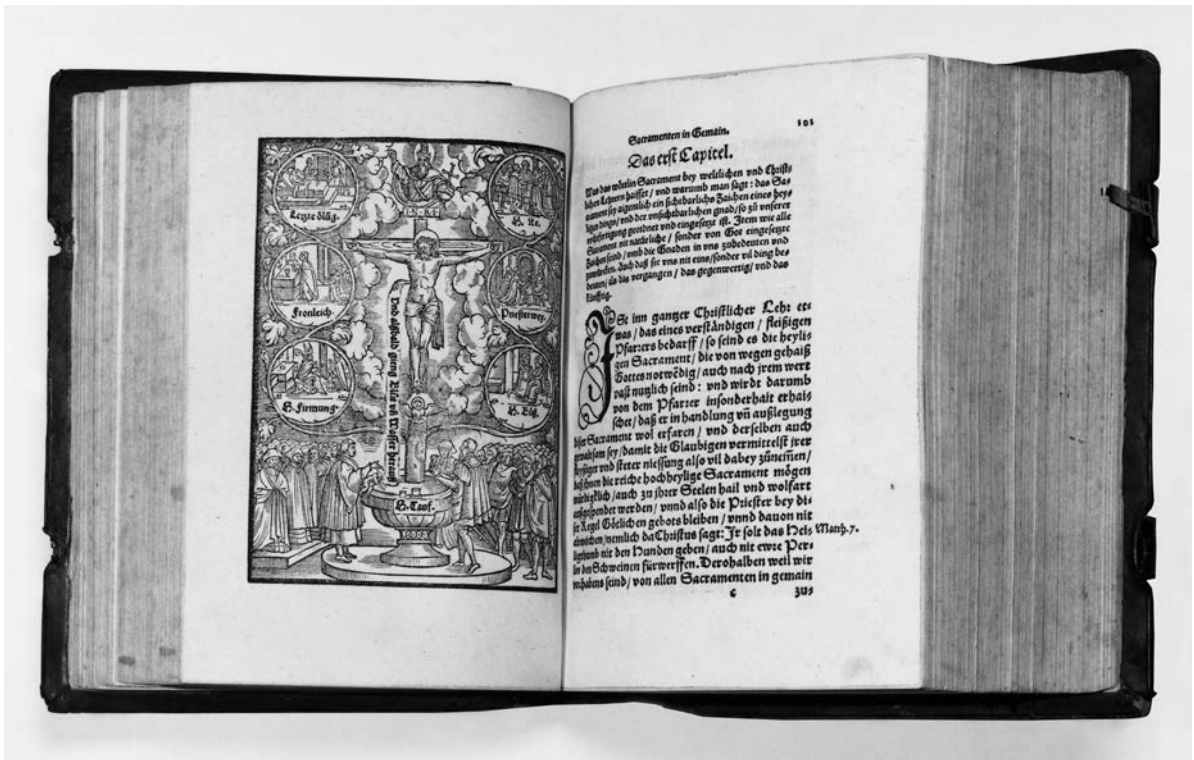 Letzte ölūg.
I·N·R·I
H. Ee.
Fronleich.
Priesterwey.
H. Firmung.
H. Bůß.
Und alßbald gieng Blůt vnd Wasser herauß
H. Tauf.
Sacramenten in Gemain.
101
Das erst Capitel.
Was das wörtlin Sacrament bey weltlichen vnd Christ-
lichen Lehrern haisset / vnd warumb man sagt: das Sa-
crament sey aigentlich ein sichtbarlichs Zaichen eines hey-
ligen dings / vnd der vnsichtbarlichen gnad / so zů vnserer
geordnet vnd eingesetzt ist. Item wie alle
Sacrament nit natürliche / sonder von Got eingesetzte
Zaichen seind / vmb die Gnaden in vns zubedeuten vnd
zuwürcken. Auch daß sie vns nit eins / sonder vil ding be-
deuten / als das vergangen / das gegenwertig / vnd das
künfftig.
ISt inn gantzer Christlicher Lehr et-
was / das eines verständigen / fleißigen
Pfarrers bedarff / so seind es die heyli-
gen Sacrament / die von wegen gehaiß
Gottes notwēdig / auch nach jrem wert
vast nutzlich seind: vnd wirdt darumb
von dem Pfarrer insonderhait erhai-
schet / daß er in handlung vñ außlegung
diser Sacrament wol erfaren / vnd derselben auch
gewaltsam sey / damit die Glaubigen vermittelst jrer
fleyßiger vnd steter niessung also vil dabey zůnemen /
daß jhnen die reiche hochheylige Sacrament mögen
würdigklich / auch zu jhrer Seelen hail vnd wolfart
außgespendet werden / vnnd also die Priester bey di-
ser Regel Götlichen gebots bleiben / vnnd dauon nit
abweichen / nemlich da Christus sagt: Ir solt das Hei-
Matth. 7.
ligthumb nit den Hunden geben / auch nit ewre Per-
lin den Schweinen fürwerffen. Derohalben weil wir
vorhabens seind / von allen Sacramenten in gemain
c
zu-